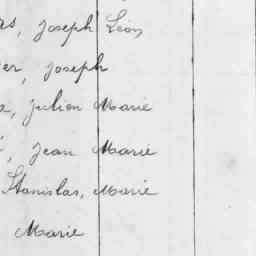 as, Joseph Léon
er, Joseph
, Julien Marie
, Jean Marie
Stanislas, Marie
Marie